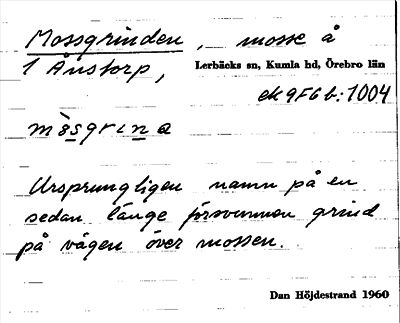 Mossgrinden, mosse å
1 Ånstorp, Lerbäcks sn, Kumla hd, Örebro län
ek 9F6b:1004
mòsgrına
Ursprungligen namn på en
sedan länge försvunnen grind
på vägen över mossen.
Dan Höjdestrand 1960